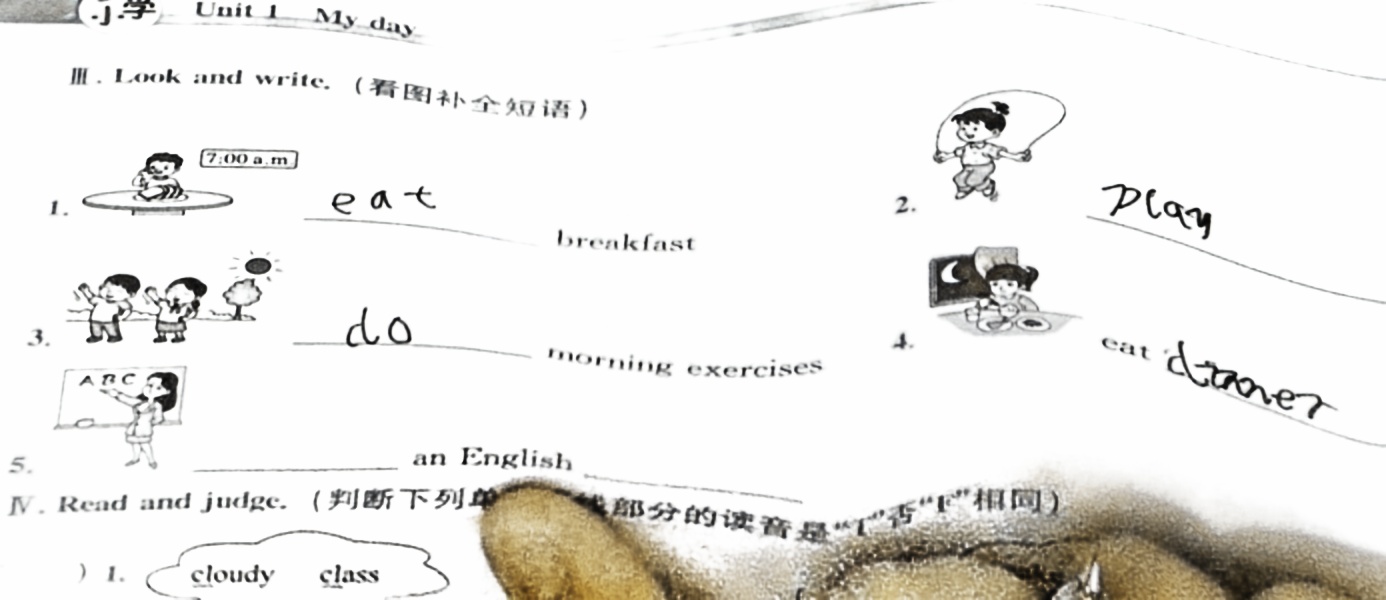 小学 Unit 1 My day
Ⅲ. Look and write. (看图补全短语)
7:00 a.m.
1. eat breakfast
2. play
3. do morning exercises
4. eat dinner
A B C
5. an English
Ⅳ. Read and judge. (判断下列单 线部分的读音是"T"否"F"相同)
) 1. cloudy class